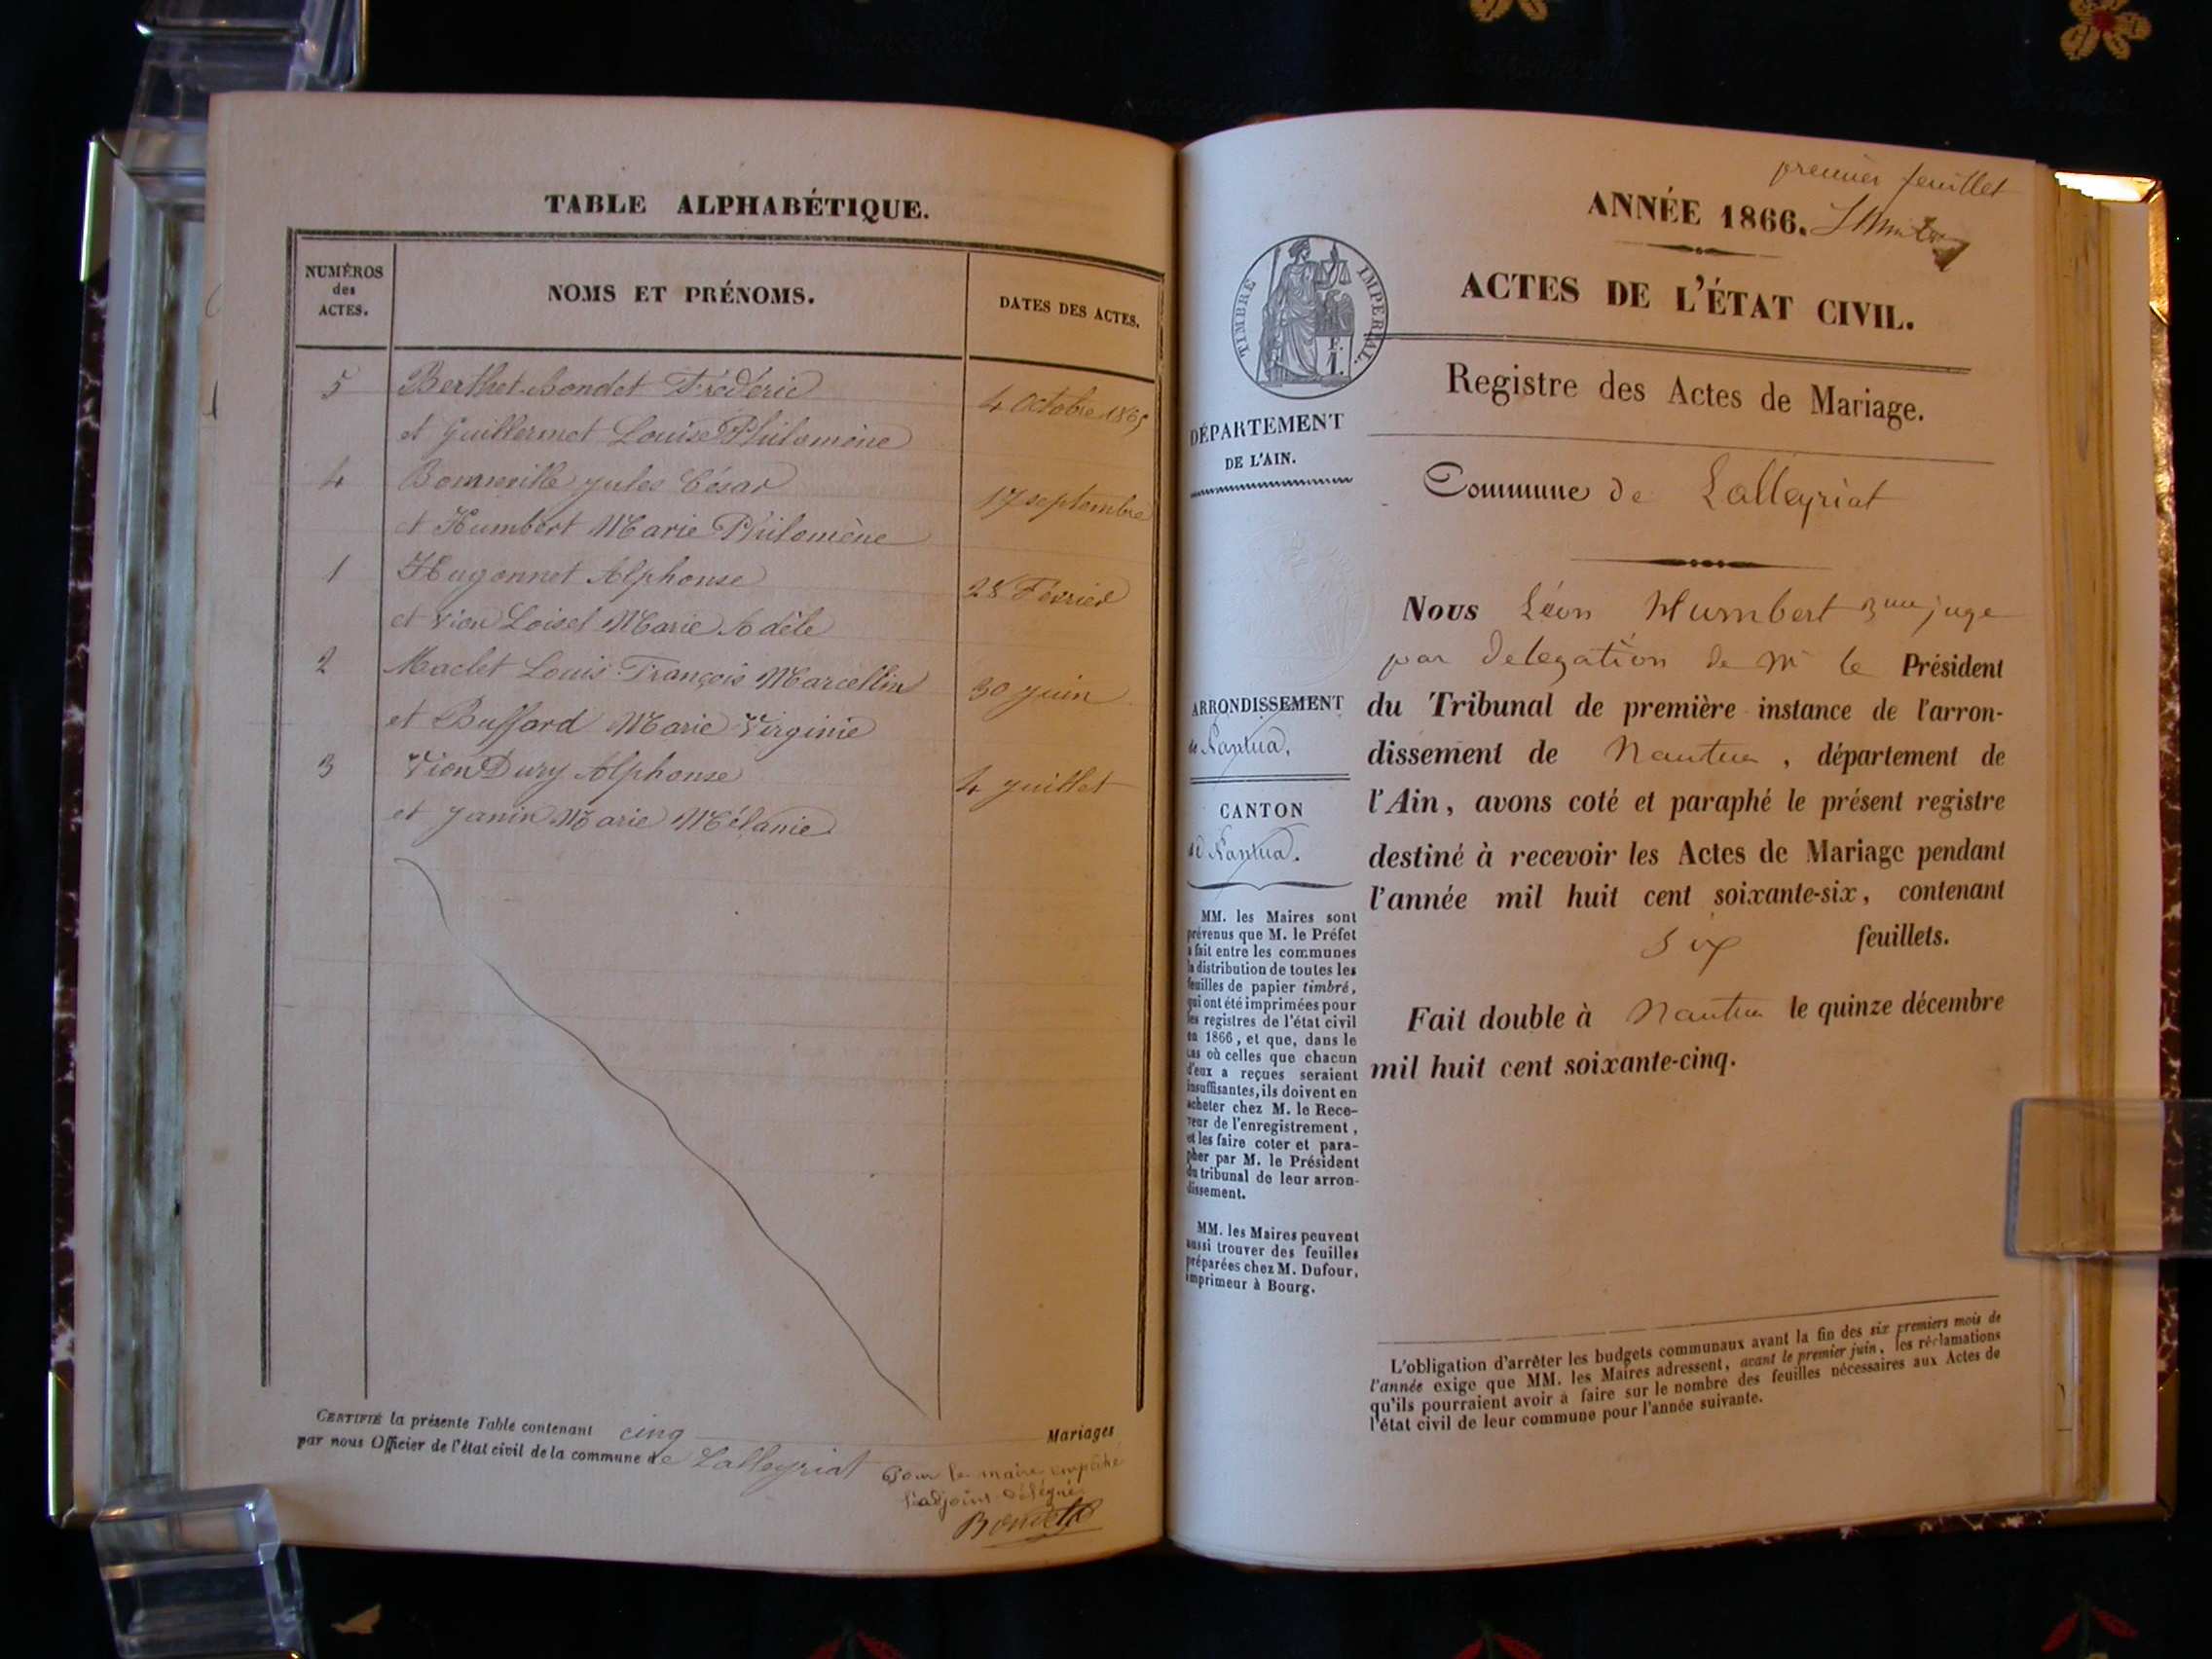 TABLE ALPHABÉTIQUE.
NUMÉROS
des
ACTES.
NOMS ET PRÉNOMS.
DATES DES ACTES.
5 Berthet-Bondet Frédéric 4 Octobre 1865
et Guillermet Louise Philomène
4 Bonneville Jules César 17 septembre
et Humbert Marie Philomène
1 Hugonnet Alphonse 28 Février
et Vion Loisel Marie Adèle
2 Maclet Louis François Marcellin 30 juin
et Buffard Marie Virginie
3 Vion Dury Alphonse 4 juillet
et Janin Marie Mélanie
CERTIFIÉ la présente Table contenant cinq Mariages
par nous Officier de l'état civil de la commune de Lalleyriat
Pour le maire empêché
l'adjoint délégué
premier feuillet
ANNÉE 1866.
TIMBRE IMPERIAL.
F.
1.
ACTES DE L'ÉTAT CIVIL.
Registre des Actes de Mariage.
Commune de Lalleyriat
DÉPARTEMENT
DE L'AIN.
ARRONDISSEMENT
de Nantua.
CANTON
de Nantua.
MM. les Maires sont
prévenus que M. le Préfet
a fait entre les communes
la distribution de toutes les
feuilles de papier timbré,
qui ont été imprimées pour
les registres de l'état civil
en 1866, et que, dans le
cas où celles que chacun
d'eux a reçues seraient
insuffisantes, ils doivent en
acheter chez M. le Rece-
veur de l'enregistrement,
et les faire coter et para-
pher par M. le Président
du tribunal de leur arron-
dissement.
MM. les Maires peuvent
aussi trouver des feuilles
préparées chez M. Dufour,
imprimeur à Bourg.
Nous Léon Humbert juge
par delegation de Mr le Président
du Tribunal de première instance de l'arron-
dissement de Nantua, département de
l'Ain, avons coté et paraphé le présent registre
destiné à recevoir les Actes de Mariage pendant
l'année mil huit cent soixante-six, contenant
six feuillets.
Fait double à Nantua le quinze décembre
mil huit cent soixante-cinq.
L'obligation d'arrêter les budgets communaux avant la fin des six premiers mois de
l'année exige que MM. les Maires adressent, avant le premier juin, les réclamations
qu'ils pourraient avoir à faire sur le nombre des feuilles nécessaires aux Actes de
l'état civil de leur commune pour l'année suivante.